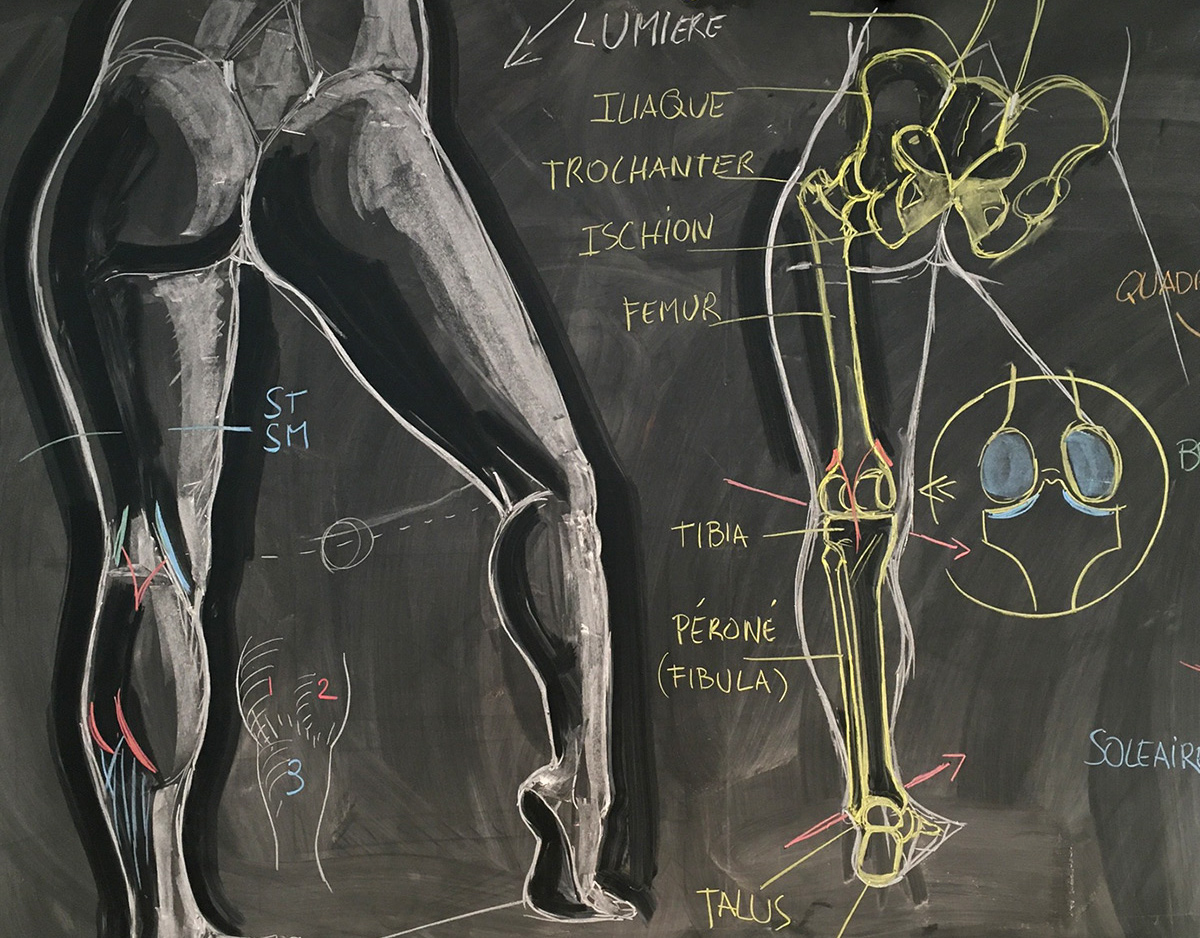 LUMIERE
ILIAQUE
TROCHANTER
ISCHION
FEMUR
QUAD
ST
SM
TIBIA
PÉRONÉ
(FIBULA)
1 2
3
SOLEAIRE
TALUS